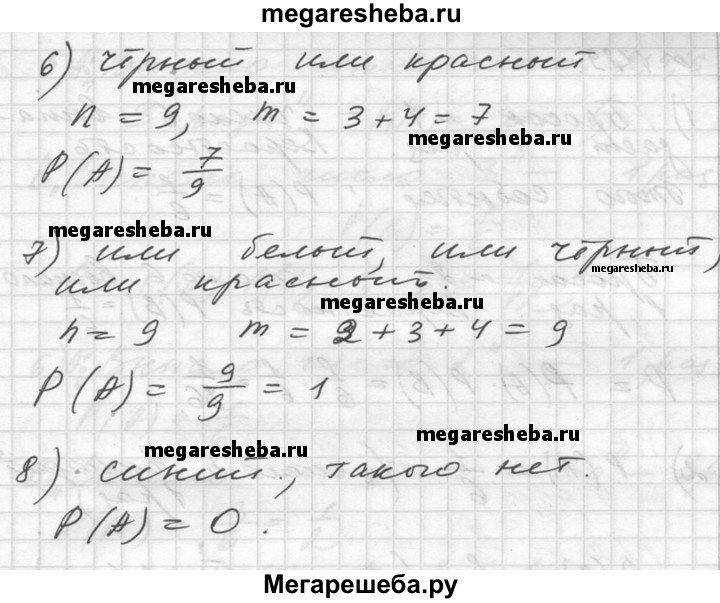 megaresheba.ru
6) чёрный или красный
megaresheba.ru
n = 9, m = 3 + 4 = 7
megaresheba.ru
P(A) = 7/9
megaresheba.ru
7) или белый, или чёрный,
megaresheba.ru
или красный.
megaresheba.ru
n = 9 m = 2 + 3 + 4 = 9
P(A) = 9/9 = 1
megaresheba.ru
megaresheba.ru
8) синий, такого нет.
P(A) = 0.
Мегарешеба.ру